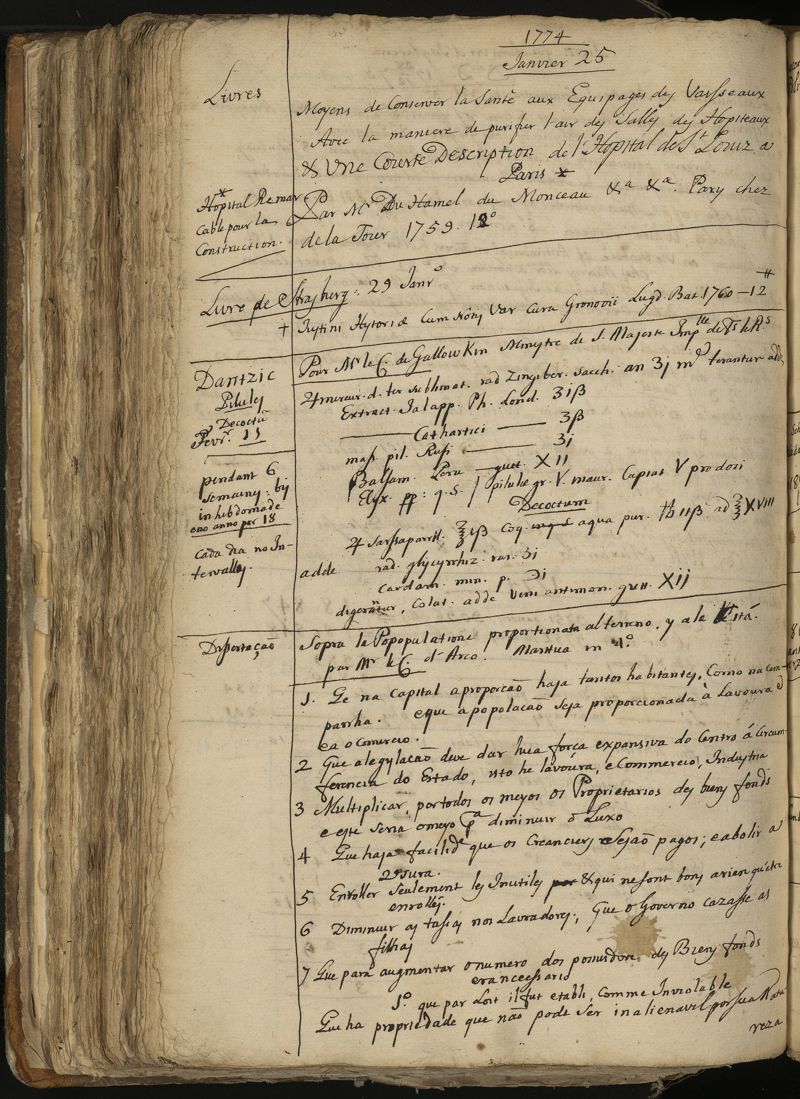 1774
Janvier 25
Livres
Moyens de Conserver la Santé aux Equipages des Vaisseaux
Avec la maniere de purifier l'air des Salles des Hopiteaux
& Une Courte Description de l'Hopital de St. Louiz a
Paris *
* Hopital Remar
cable pour la
Construction.
Par Mr. Du Hamel du Monceau &a &a. Pary chez
de la Tour 1759. 12o
Livre de Strasberg: 29 Janro
+ Justini Hystoriæ Cum Notis Var Cura Gronovii Lugd. Bat. 1760 — 12
Pour Mr. le C. de Gallowkin Ministre de S. Majesté Imple de Ts. les Rs
Dantzic
Pilules
& Decoctũ
Fevr. 15
pendant 6
semaines: bis
in hebdomade
eno anno por 18
cada dia no In-
tervalles.
♃ mercur. d. ter sublimat. rad Zingiber. Sacch. an ʒj ms terantur adde
Extract. Jalapp. Ph. Lond. ʒiß
——— Cathartici —— ʒß
mass. pil. Rufi ——— ʒj
Balsam. Peru — gutt. XII
Elix. pp: q. S. f pilulæ gr. V. maur. Capiat V pro dosi
Decoctum
♃ Sarsaparill. ℥iß Coq. aqua pur. ℔ iiß ad ℥ XVIII
adde rad. glycyrrhiz. ras. ʒi
Cardam. min. p. ℈i
digerãtur, Colat. adde Vini antimon. gutt. XII
Dissertação
Sopra la Popopulatione proportionata al terreno, y a le
par Mr. le C. d'Arco. Mantua in 4o
1. Se na Capital a proporção haja tantos habitantes, Como na Cam-
panha. e que a população seja proporcionada à Lavoura
e a o Comercio.
2 Que a legislação deve dar hua força expansiva do Centro á Circum-
ferencia do Estado, isto he lavoura, e Commercio, Industria
3 Multiplicar, por todos os meyos os Proprietarios des biens fonds
e este seria o meyo pa diminuir o Luxo
4 Que haja facilide que os Creanciers Sejão pagos; e abolir a
usura.
5 Enroller seulement les Inutiles & qui ne sont bons a rien qu'étre
enrollés.
6 Diminuir as tassas nos Lavradores; Que o Governo cazasse as
filhas
7 Que para augmentar o numero dos possuidores des Biens fonds
era necessario
1.o que par Loix il fut etabli, comme Inviolable
Que ha propriedade que não pode ser inalienavel por sua Natu
reza